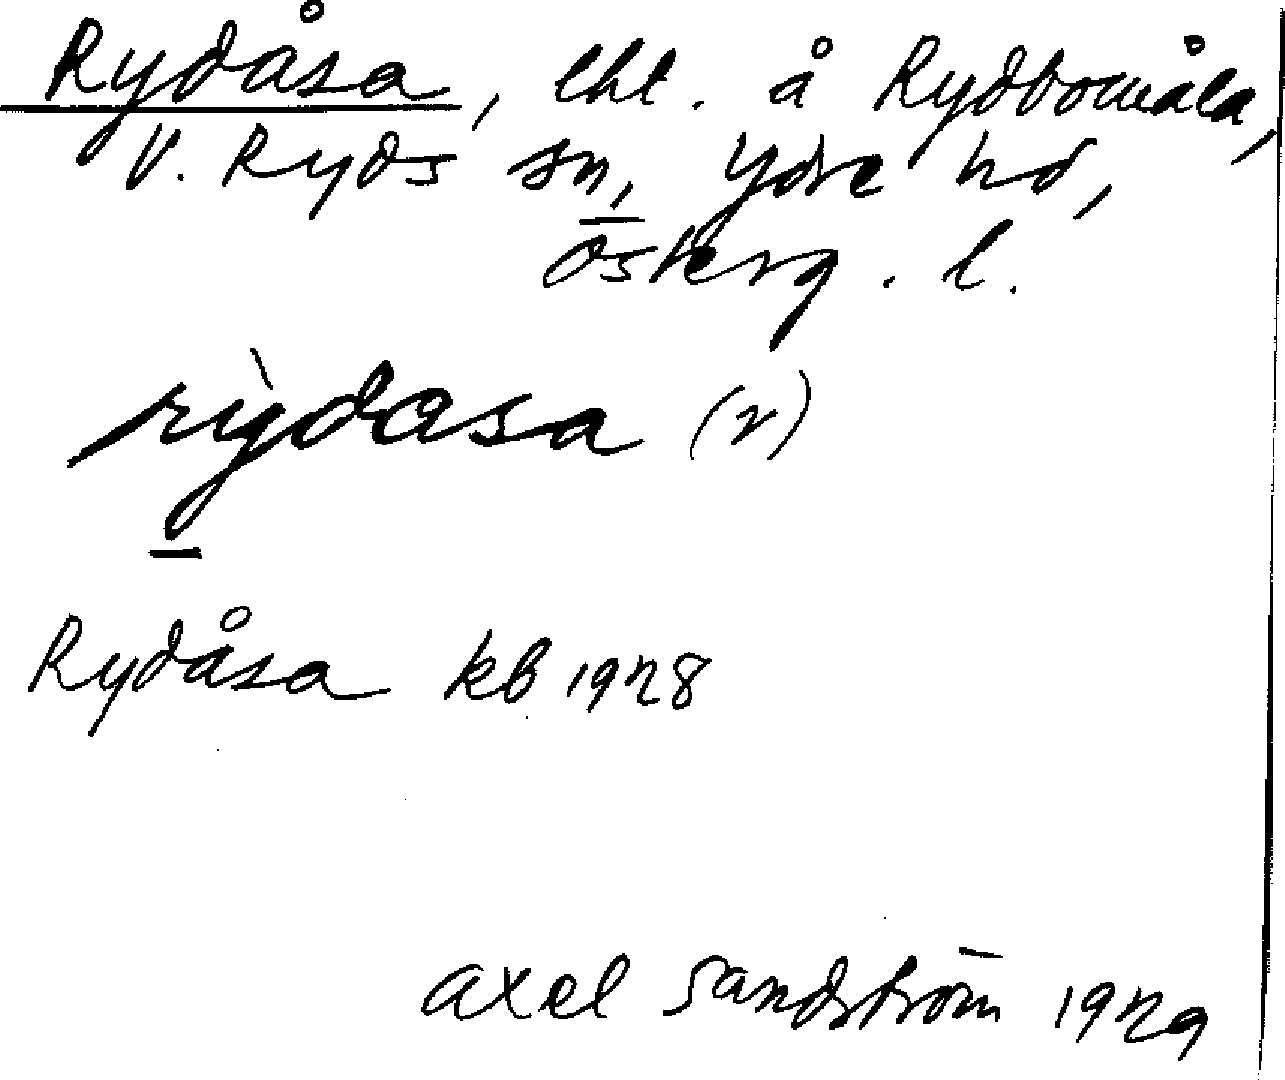 Rydåsa, lht. å Rydbomåla,
V. Ryds sn, Ydre hd,
Österg. l.
rỳdasa (2)
Rydåsa kb 1928
Axel Sandström 1929